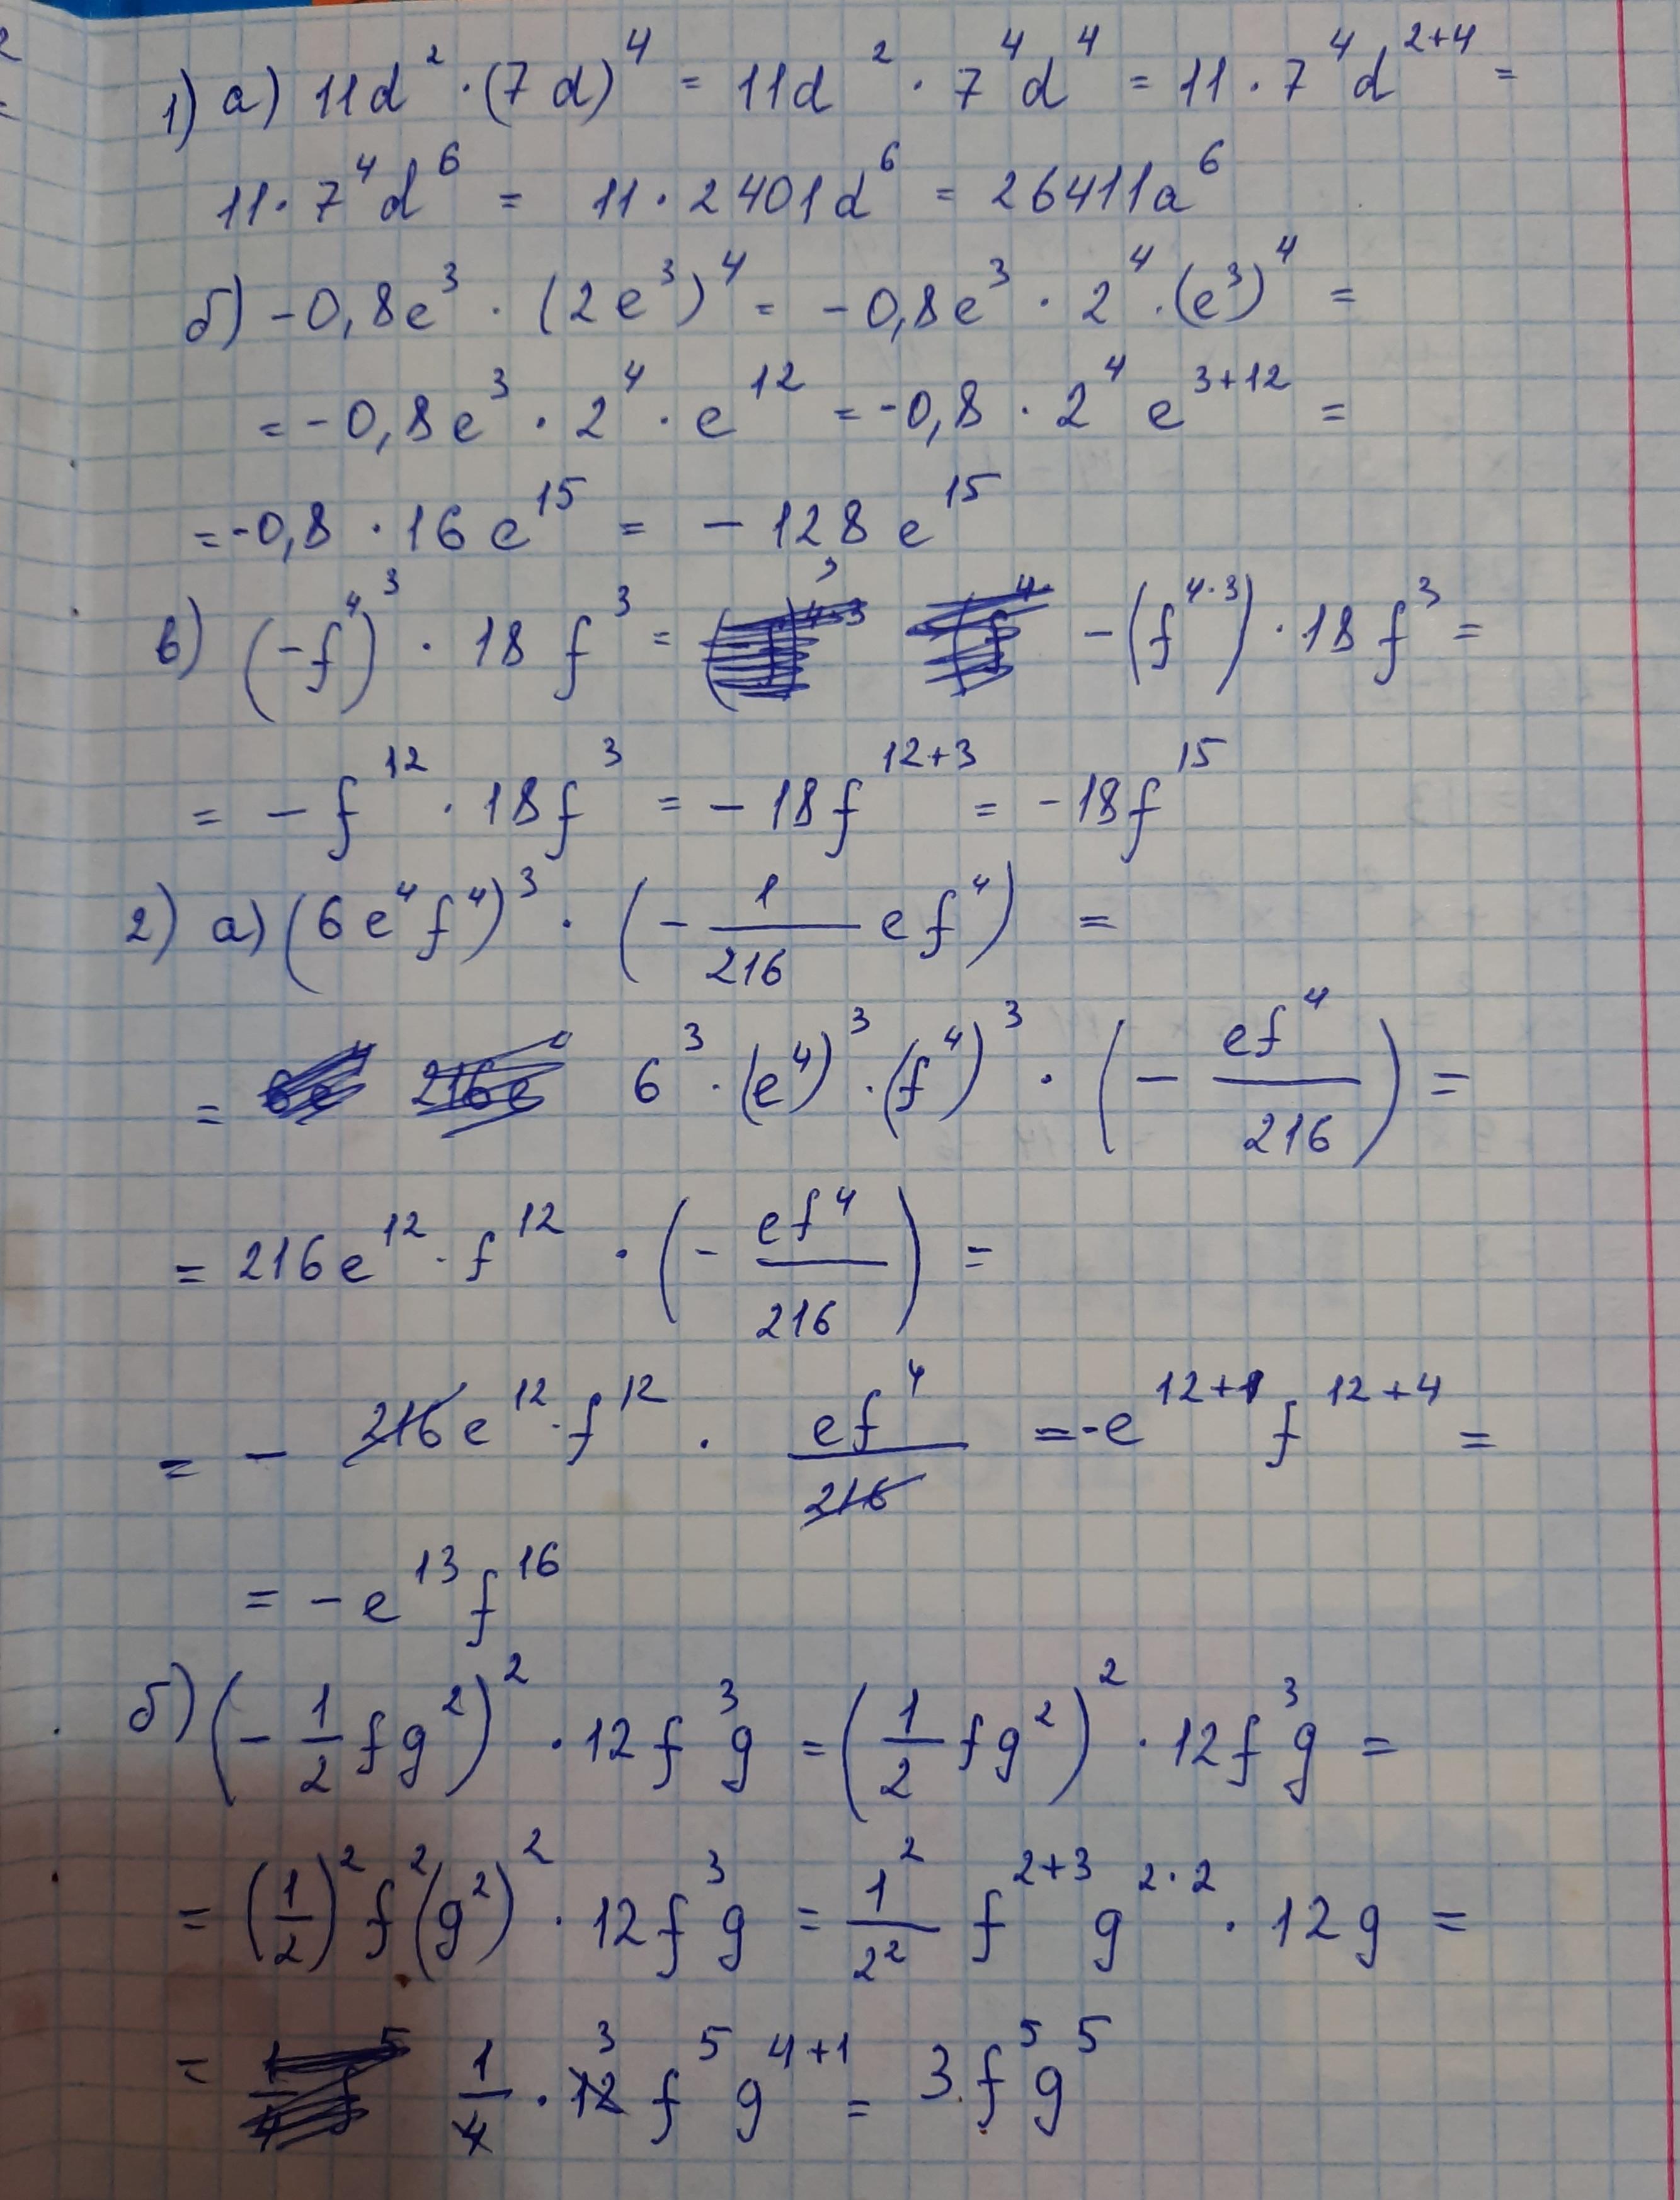 1) а) 11d² · (7d)⁴ = 11d² · 7⁴d⁴ = 11 · 7⁴d²⁺⁴ =
11 · 7⁴d⁶ = 11 · 2401d⁶ = 26411a⁶
б) -0,8e³ · (2e³)⁴ = -0,8e³ · 2⁴ · (e³)⁴ =
= -0,8e³ · 2⁴ · e¹² = -0,8 · 2⁴ e³⁺¹² =
= -0,8 · 16e¹⁵ = - 128 e¹⁵
в) (-f⁴)³ · 18 f³ = - (f⁴·³) · 18 f³ =
= - f¹² · 18f³ = - 18f¹²⁺³ = - 18f¹⁵
2) а) (6e⁴f⁴)³ · (- 1/216 ef⁴) =
= 6³ · (e⁴)³ · (f⁴)³ · (- ef⁴/216) =
= 216e¹² · f¹² · (- ef⁴/216) =
= - 216e¹² · f¹² · ef⁴/216 = -e¹²⁺¹ f¹²⁺⁴ =
= - e¹³f¹⁶
б) (- 1/2 fg²)² · 12f³g = (1/2 fg²)² · 12f³g =
= (1/2)² f²(g²)² · 12f³g = 1²/2² f²⁺³ g²·² · 12g =
= 1/4 · 12 3 f⁵ g⁴⁺¹ = 3 f⁵g⁵